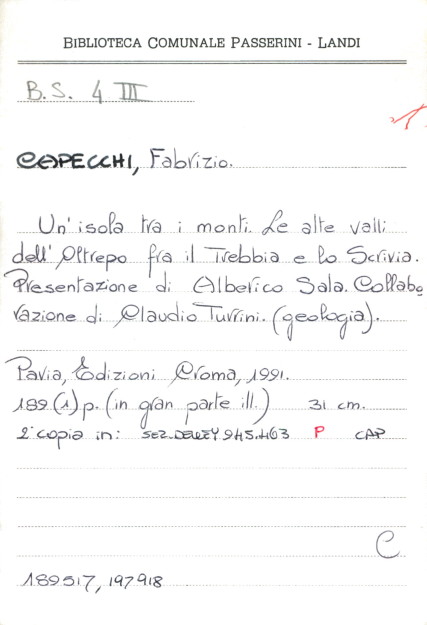 BIBLIOTECA COMUNALE PASSERINI - LANDI
B.S. 4 III
CAPECCHI, Fabrizio.
Un' isola tra i monti. Le alte valli
dell' Oltrepo fra il Trebbia e lo Scrivia.
Presentazione di Alberico Sala. Collabo
razione di Claudio Turrini. (geologia).
Pavia, Edizioni Croma, 1991.
189 (1) p. (in gran parte ill.) 31 cm.
2ª copia in: SEZ. DEWEY 945.463 P CAP
C
189517, 197918